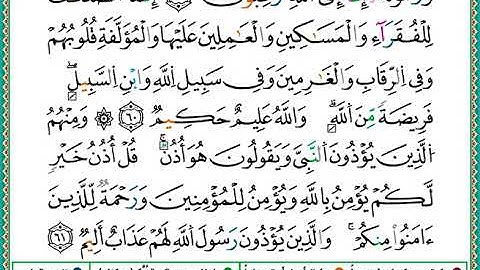 لِلْفُقَرَآءِ وَالْمَسَاكِينِ وَالْعَامِلِينَ عَلَيْهَا وَالْمُؤَلَّفَةِ قُلُوبُهُمْ
وَفِي الرِّقَابِ وَالْغَارِمِينَ وَفِي سَبِيلِ اللَّهِ وَابْنِ السَّبِيلِ ۖ
فَرِيضَةً مِّنَ اللَّهِ ۗ وَاللَّهُ عَلِيمٌ حَكِيمٌ ٦٠ ۞ وَمِنْهُمُ
الَّذِينَ يُؤْذُونَ النَّبِيَّ وَيَقُولُونَ هُوَ أُذُنٌ ۚ قُلْ أُذُنُ خَيْرٍ
لَّكُمْ يُؤْمِنُ بِاللَّهِ وَيُؤْمِنُ لِلْمُؤْمِنِينَ وَرَحْمَةٌ لِّلَّذِينَ
ءَامَنُوا مِنكُمْ ۚ وَالَّذِينَ يُؤْذُونَ رَسُولَ اللَّهِ لَهُمْ عَذَابٌ أَلِيمٌ ٦١